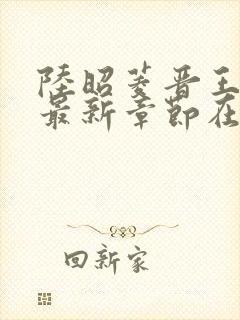 陸昭菱晋王
最新章節在
回新家